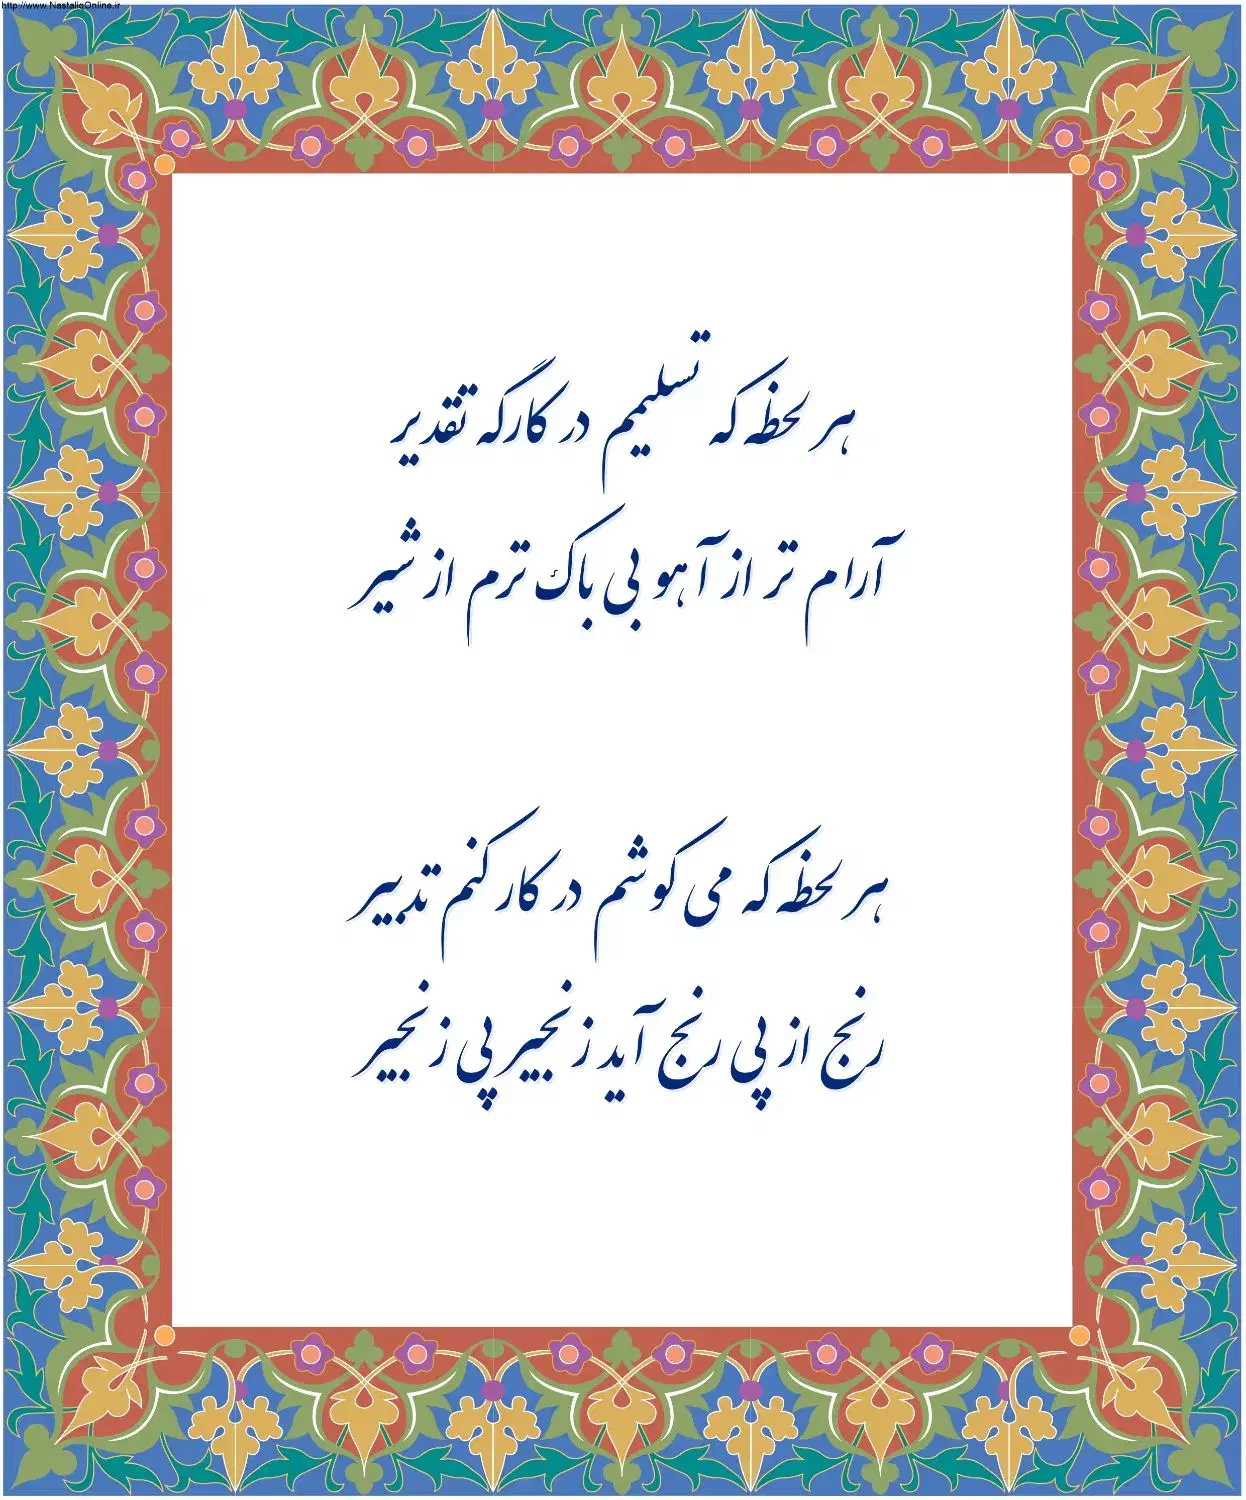 http://www.NastaliqOnline.ir
هر لحظه که تسلیمم در کارگه تقدیر
آرام تر از آهو بی باک ترم از شیر
هر لحظه که می کوشم در کار کنم تدبیر
رنج از پی رنج آید زنجیر پی زنجیر